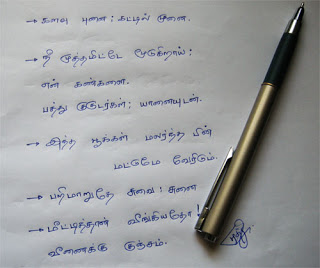 → களவு புனை; கட்டில் முனை.
→ நீ முத்தமிட்டே மூடுகிறாய்;
என் கண்களை.
பத்து குடுடர்கள்; யானையுடன்.
→ இந்த பூக்கள் மலர்ந்த பின்
மட்டுமே வேர்விடும்.
→ பரிமாறுதே சுவை; சுனை
→ மீட்டித்தான் வீங்கியதோ!
வீணைக்கு குஞ்சம்.